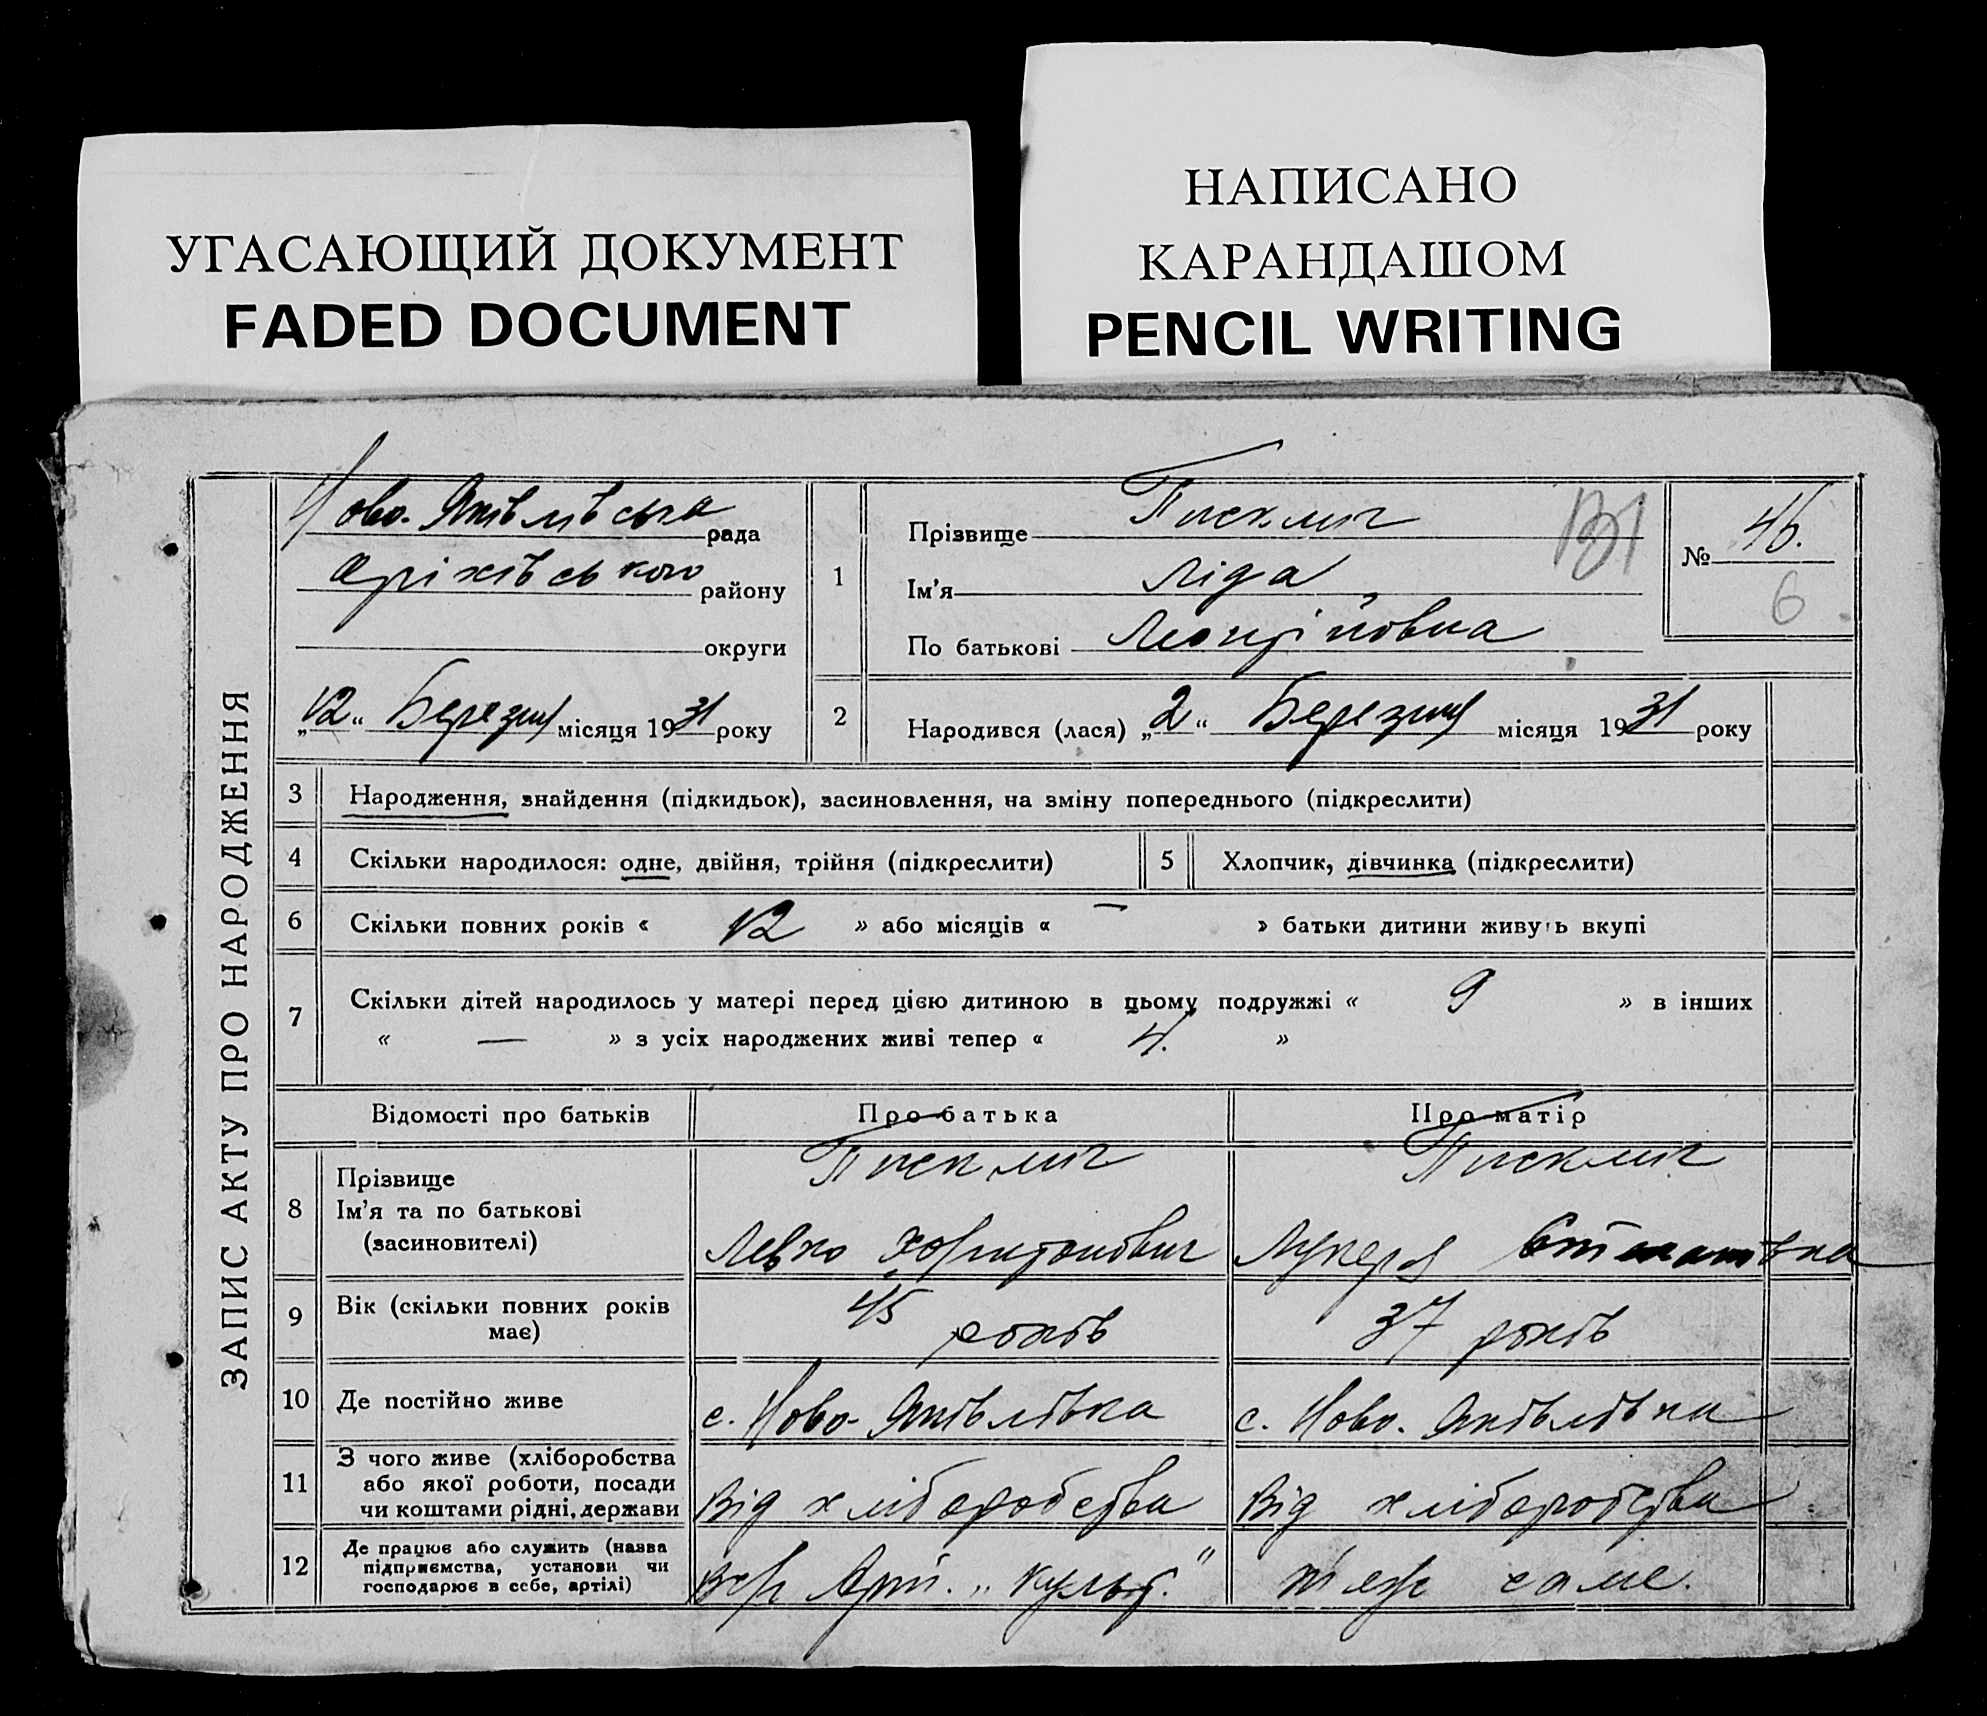 УГАСАЮЩИЙ ДОКУМЕНТ
FADED DOCUMENT
НАПИСАНО
КАРАНДАШОМ
PENCIL WRITING
ЗАПИС АКТУ ПРО НАРОДЖЕННЯ
Ново-Яківлівська рада
Оріхівського району
округи
„12“ Березня місяця 1931 року
1
Прізвище Писклич
Ім'я Ліда
По батькові
№ 46.
6
2 Народився (лася) „2“ Березня місяця 1931 року
3 Народження, знайдення (підкидьок), засиновлення, на зміну попереднього (підкреслити)
4 Скільки народилося: одне, двійня, трійня (підкреслити)
5 Хлопчик, дівчинка (підкреслити)
6 Скільки повних років « 12 » або місяців « — » батьки дитини живуть вкупі
7 Скільки дітей народилось у матері перед цією дитиною в цьому подружжі « 9 » в інших
« — » з усіх народжених живі тепер « 4. »
Відомості про батьків
Про батька
Про матір
8
Прізвище
Ім'я та по батькові
(засиновителі)
Писклич
Левко Харитонович
Писклич
Лукеря Степанівна
9 Вік (скільки повних років
має)
45 років
37 років
10 Де постійно живе
с. Ново-Яківлівка
с. Ново-Яківлівка
11
З чого живе (хліборобства
або якої роботи, посади
чи коштами рідні, держави
Від хліборобства
Від хліборобства
12
Де працює або служить (назва
підприємства, установи чи
господарює в себе, артілі)
Арт. „Культ."
теж саме.